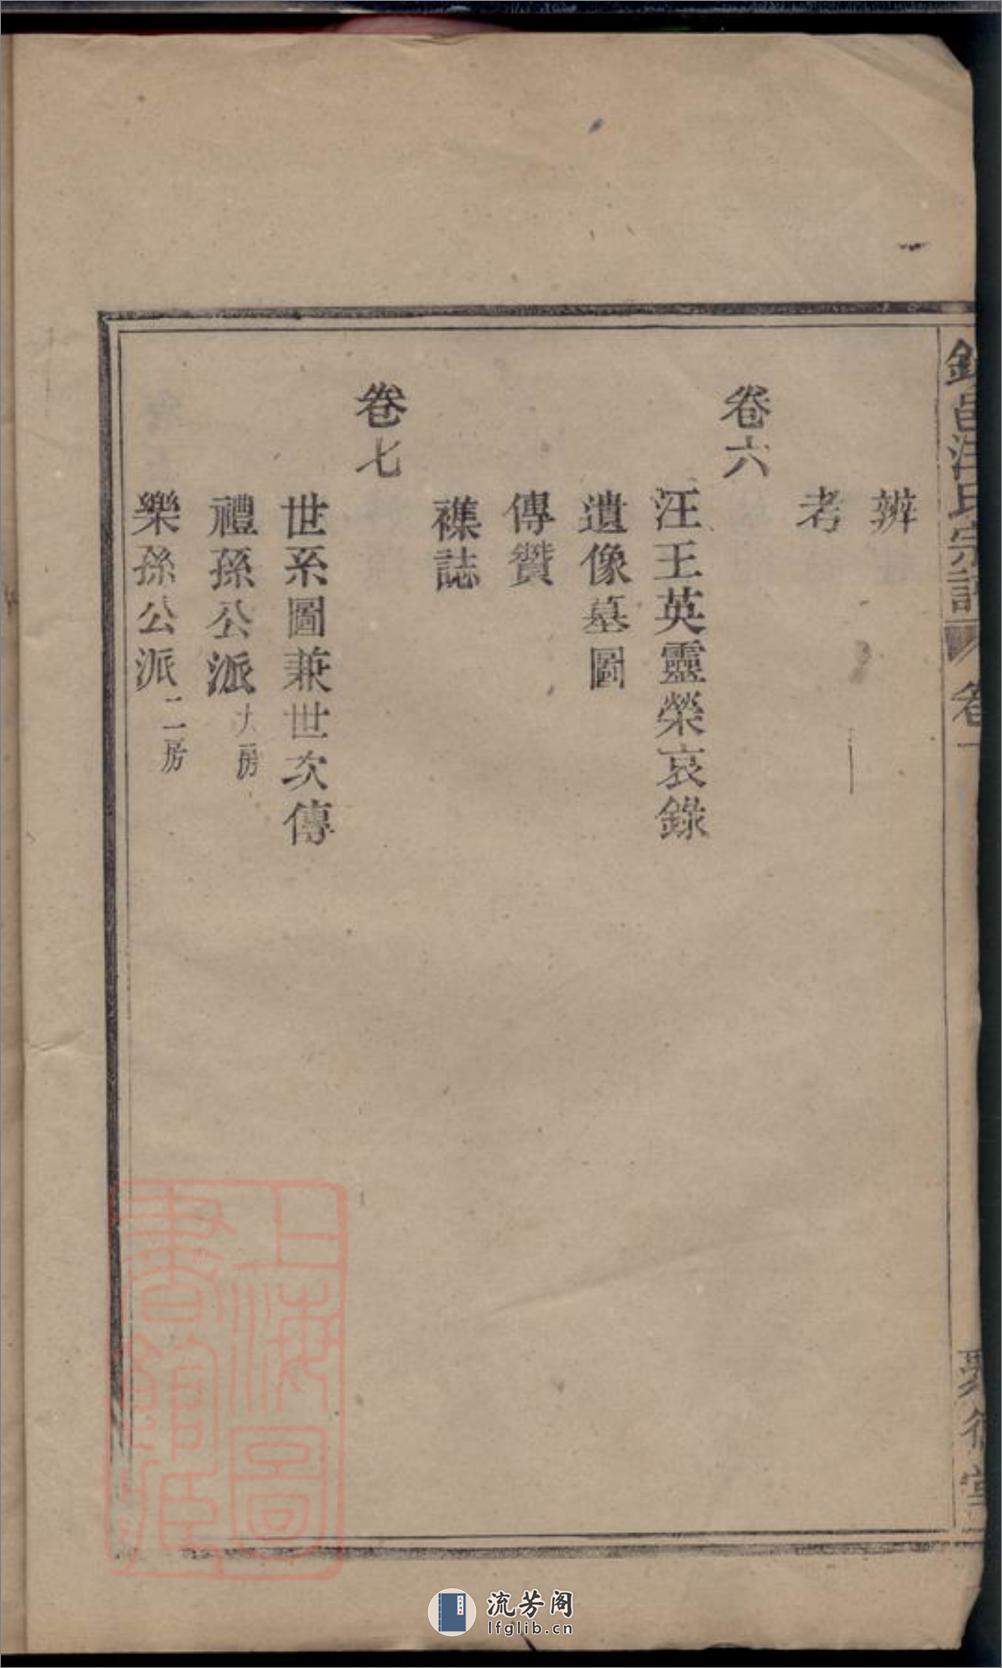 邑汪氏宗譜
卷
聚德堂
辨
考
卷六
汪王英靈榮哀錄
遺像墓圖
傳贊
襍誌
卷七
世系圖兼世次傳
禮孫公派大房
樂孫公派二房
上海圖
書館藏
流芳阁
lfglib.cn